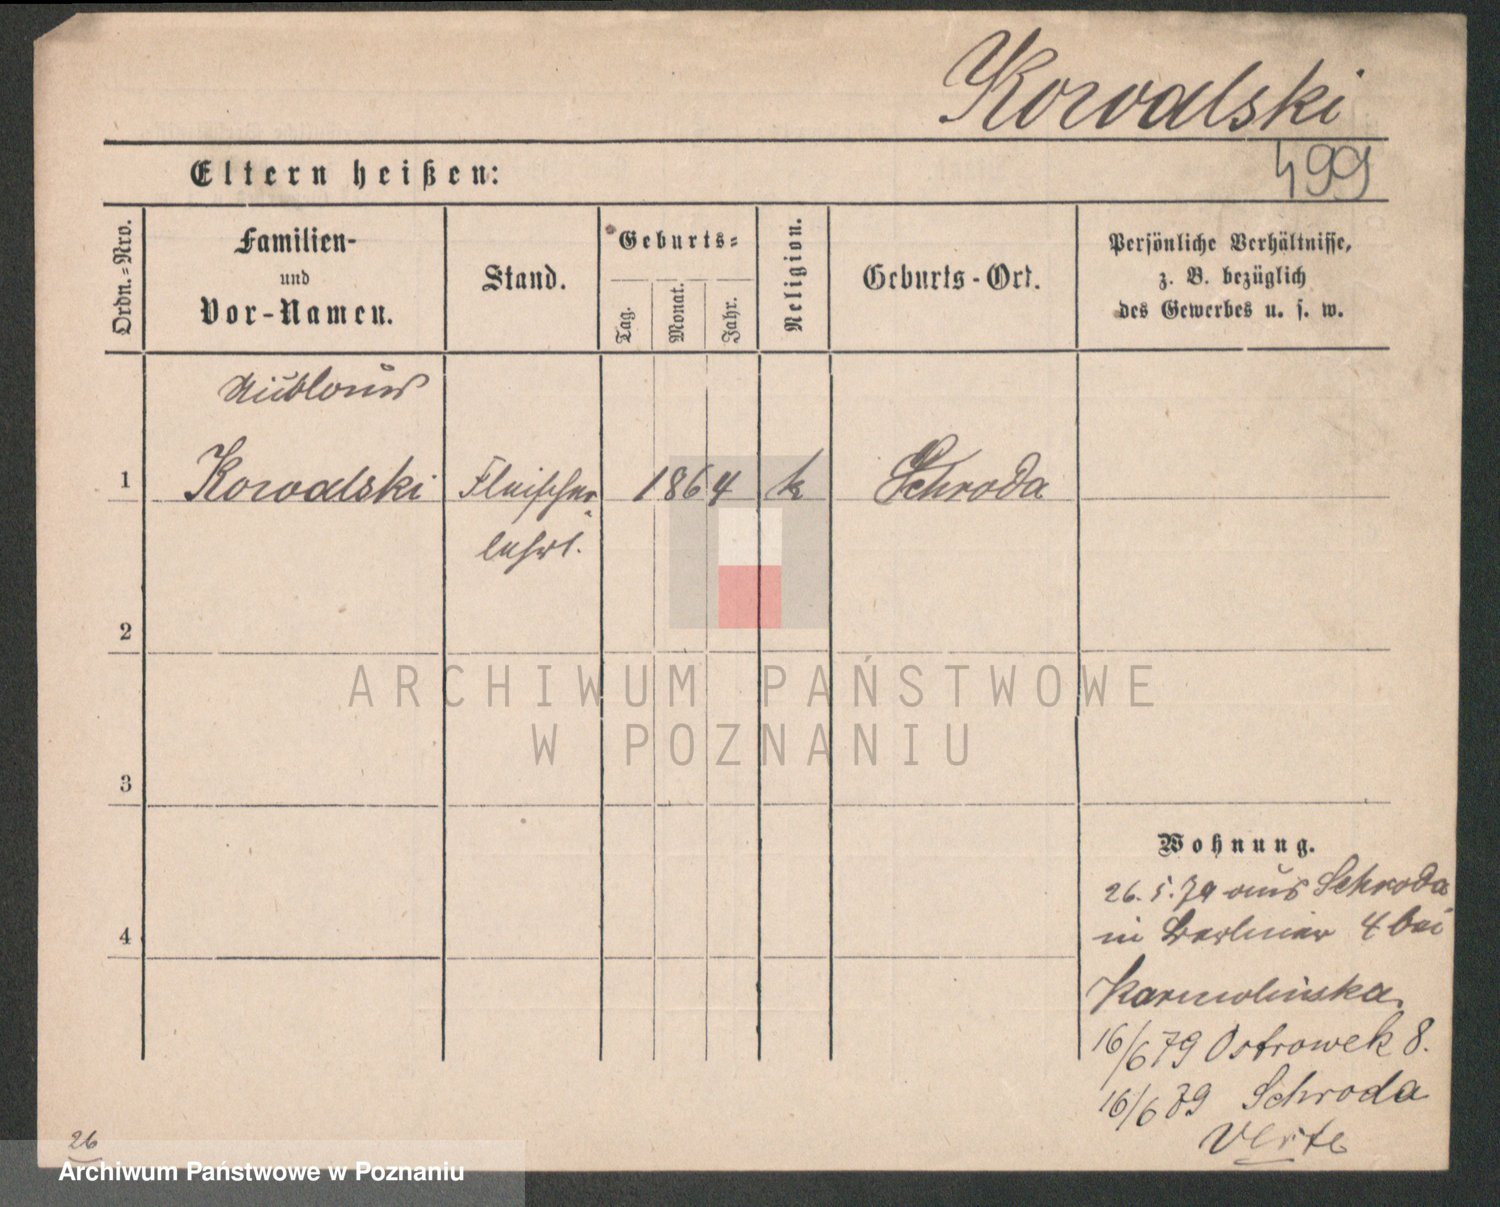 Kowalski
Eltern heißen:
499
Ordn.=Nro.
Familien-
und
Vor-Namen.
Stand.
Geburts=
Tag.
Monat.
Jahr.
Religion.
Geburts-Ort.
Persönliche Verhältnisse,
z. B. bezüglich
des Gewerbes u. s. w.
1
Kowalski
Fleischer
1864
k
Schroda
lehrl.
2
ARCHIWUM PAŃSTWOWE
W POZNANIU
3
Wohnung.
26. 5. 79 aus Schroda
4
in Berliner 4 bei
Karmolinska
16/6 79 Ostrowek 8.
16/6 89 Schroda
Verte
26
Archiwum Państwowe w Poznaniu